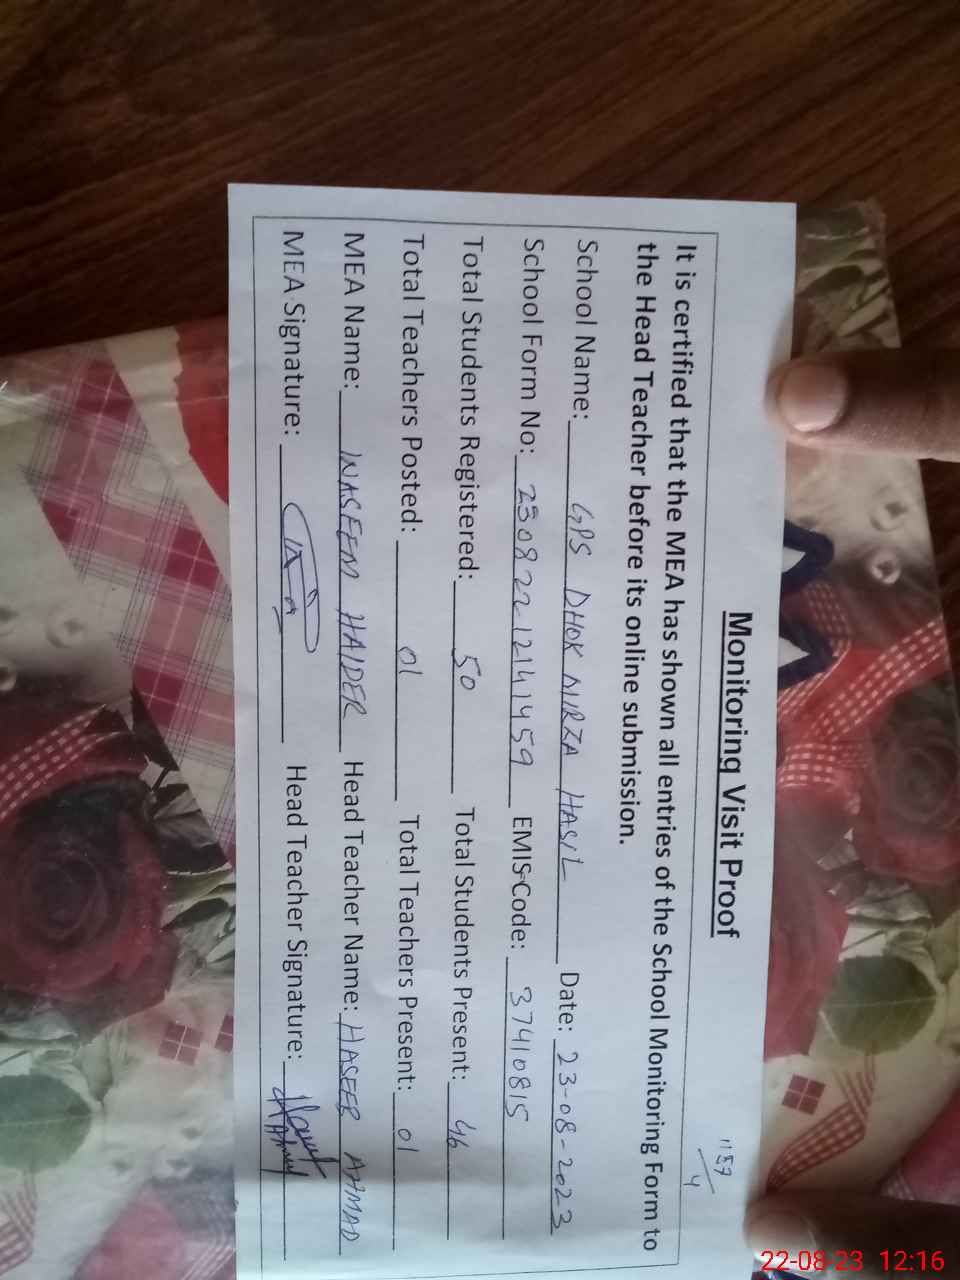 Monitoring Visit Proof
It is certified that the MEA has shown all entries of the School Monitoring Form to
the Head Teacher before its online submission.
School Name: GPS DHOK MIRZA HASIL Date: 23-08-2023
School Form No: 23082212141459 EMIS Code: 37410815
Total Students Registered: 50 Total Students Present: 46
Total Teachers Posted: 01 Total Teachers Present: 01
MEA Name: WASEEM HAIDER Head Teacher Name: HASEEB AHMAD
MEA Signature: Head Teacher Signature:
22-08-23 12:16